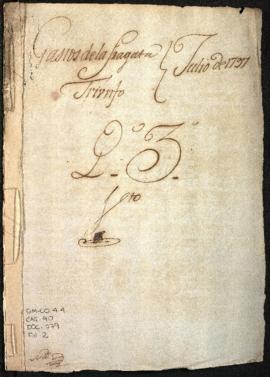 Gastos de la fragata
Triunfo
Julio de 1797
Q.º 3.º
OM-CO 44
CAJ. 40
DOC. 579
Fol. 2